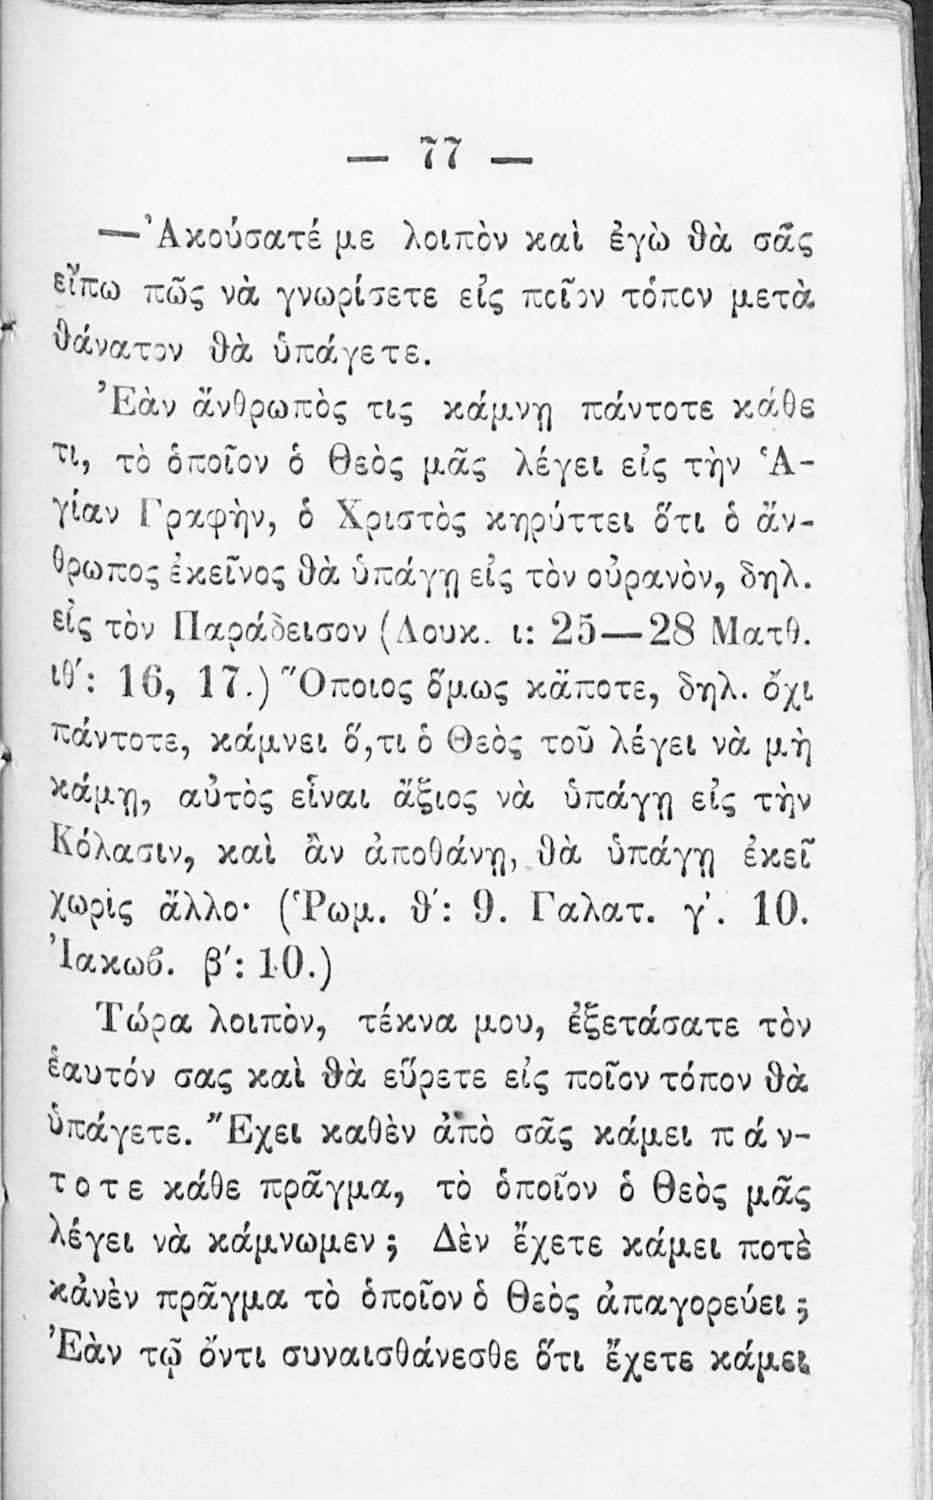 — 77 —
—Ἀκούσατέ με λοιπὸν καὶ ἐγὼ θὰ σᾶς
εἴπω πῶς νὰ γνωρίσετε εἰς ποῖον τόπον μετὰ
θάνατον θὰ ὑπάγετε.
Ἐὰν ἄνθρωπὸς τις κάμνῃ πάντοτε κάθε
τι, τὸ ὁποῖον ὁ Θεὸς μᾶς λέγει εἰς τὴν Ἁ-
γίαν Γραφὴν, ὁ Χριστὸς κηρύττει ὅτι ὁ ἄν-
θρωπος ἐκεῖνος θὰ ὑπάγῃ εἰς τὸν οὐρανὸν, δηλ.
εἰς τὸν Παράδεισον (Λουκ. ι: 25—28 Ματθ.
ιθ΄: 16, 17.) Ὅποιος ὅμως κἄποτε, δηλ. ὄχι
πάντοτε, κάμνει ὅ,τι ὁ Θεὸς τοῦ λέγει νὰ μὴ
κάμῃ, αὐτὸς εἶναι ἄξιος νὰ ὑπάγῃ εἰς τὴν
Κόλασιν, καὶ ἂν ἀποθάνῃ, θὰ ὑπάγῃ ἐκεῖ
χωρὶς ἄλλο· (Ῥωμ. θ΄: 9. Γαλατ. γ΄. 10.
Ἰακωϐ. β΄: 10.)
Τώρα λοιπὸν, τέκνα μου, ἐξετάσατε τὸν
ἑαυτόν σας καὶ θὰ εὕρετε εἰς ποῖον τόπον θὰ
ὑπάγετε. Ἔχει καθὲν ἀπὸ σᾶς κάμει πάν-
τοτε κάθε πρᾶγμα, τὸ ὁποῖον ὁ Θεὸς μᾶς
λέγει νὰ κάμνωμεν ; Δὲν ἔχετε κάμει ποτὲ
κἀνὲν πρᾶγμα τὸ ὁποῖον ὁ Θεὸς ἀπαγορεύει ;
Ἐὰν τῷ ὄντι συναισθάνεσθε ὅτι ἔχετε κάμει